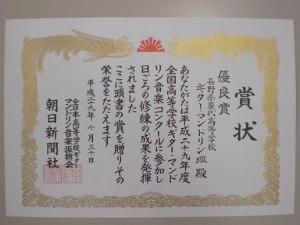 賞状
優良賞
長野県屋代高等学校
ギターマンドリン班 殿
あなたがたは平成二十九年度
全国高等学校ギター・マンド
リン音楽コンクールに参加し
日ごろの修練の成果を発揮
されました
ここに頭書の賞を贈りその
栄誉をたたえます
平成二十九年 七月 三十日
全日本高等学校ギター・
マンドリン音楽振興会
朝日新聞社